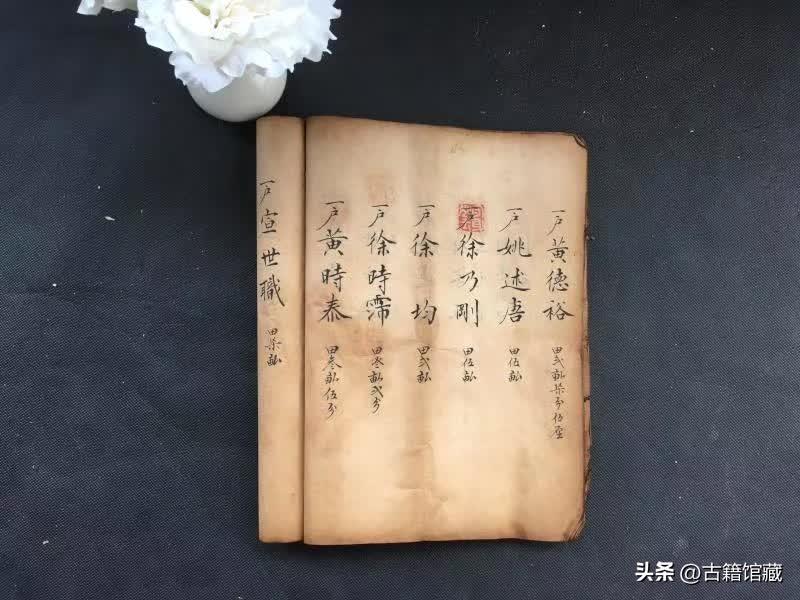 一户黃德裕 田弍畝柒分伍厘
一户姚述唐 田伍畝
一户徐乃剛 田伍畝
一户徐均 田弍畝
一户徐時霈 田叁畝弍分
一户黃時泰 田叁畝伍分
一户宣世職 田柒畝
头条 @古籍馆藏